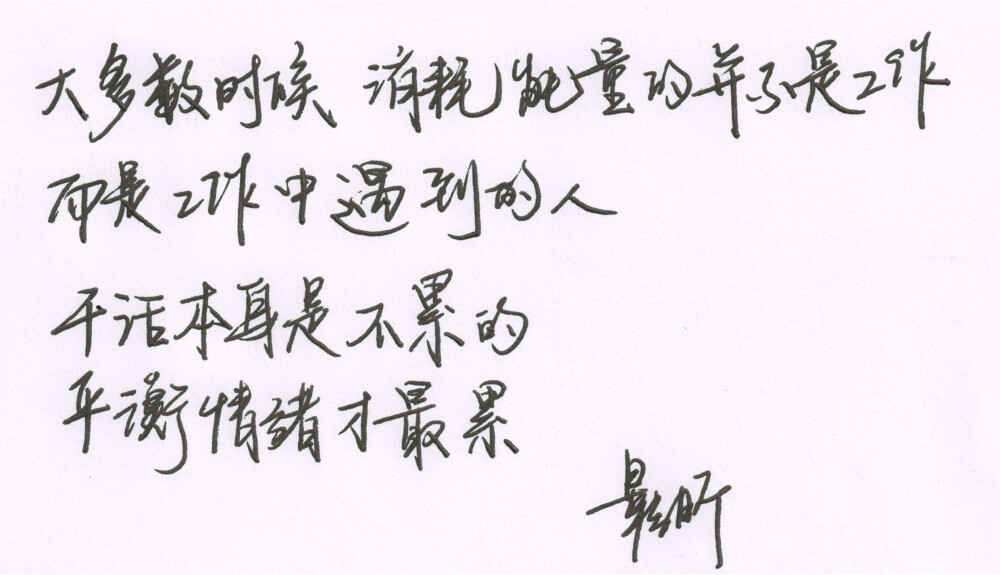 大多数时候 消耗能量的并不是工作
而是工作中遇到的人
干活本身是不累的
平衡情绪才最累